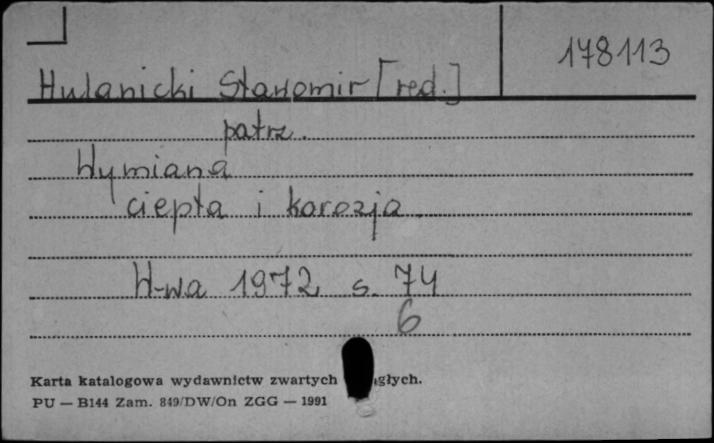 178113
Hulanicki Sławomir [red.]
patrz.
Wymiana
ciepła i korozja.
W-wa 1972 s. 74
6
Karta katalogowa wydawnictw zwartych głych.
PU — B144 Zam. 849/DW/On ZGG — 1991